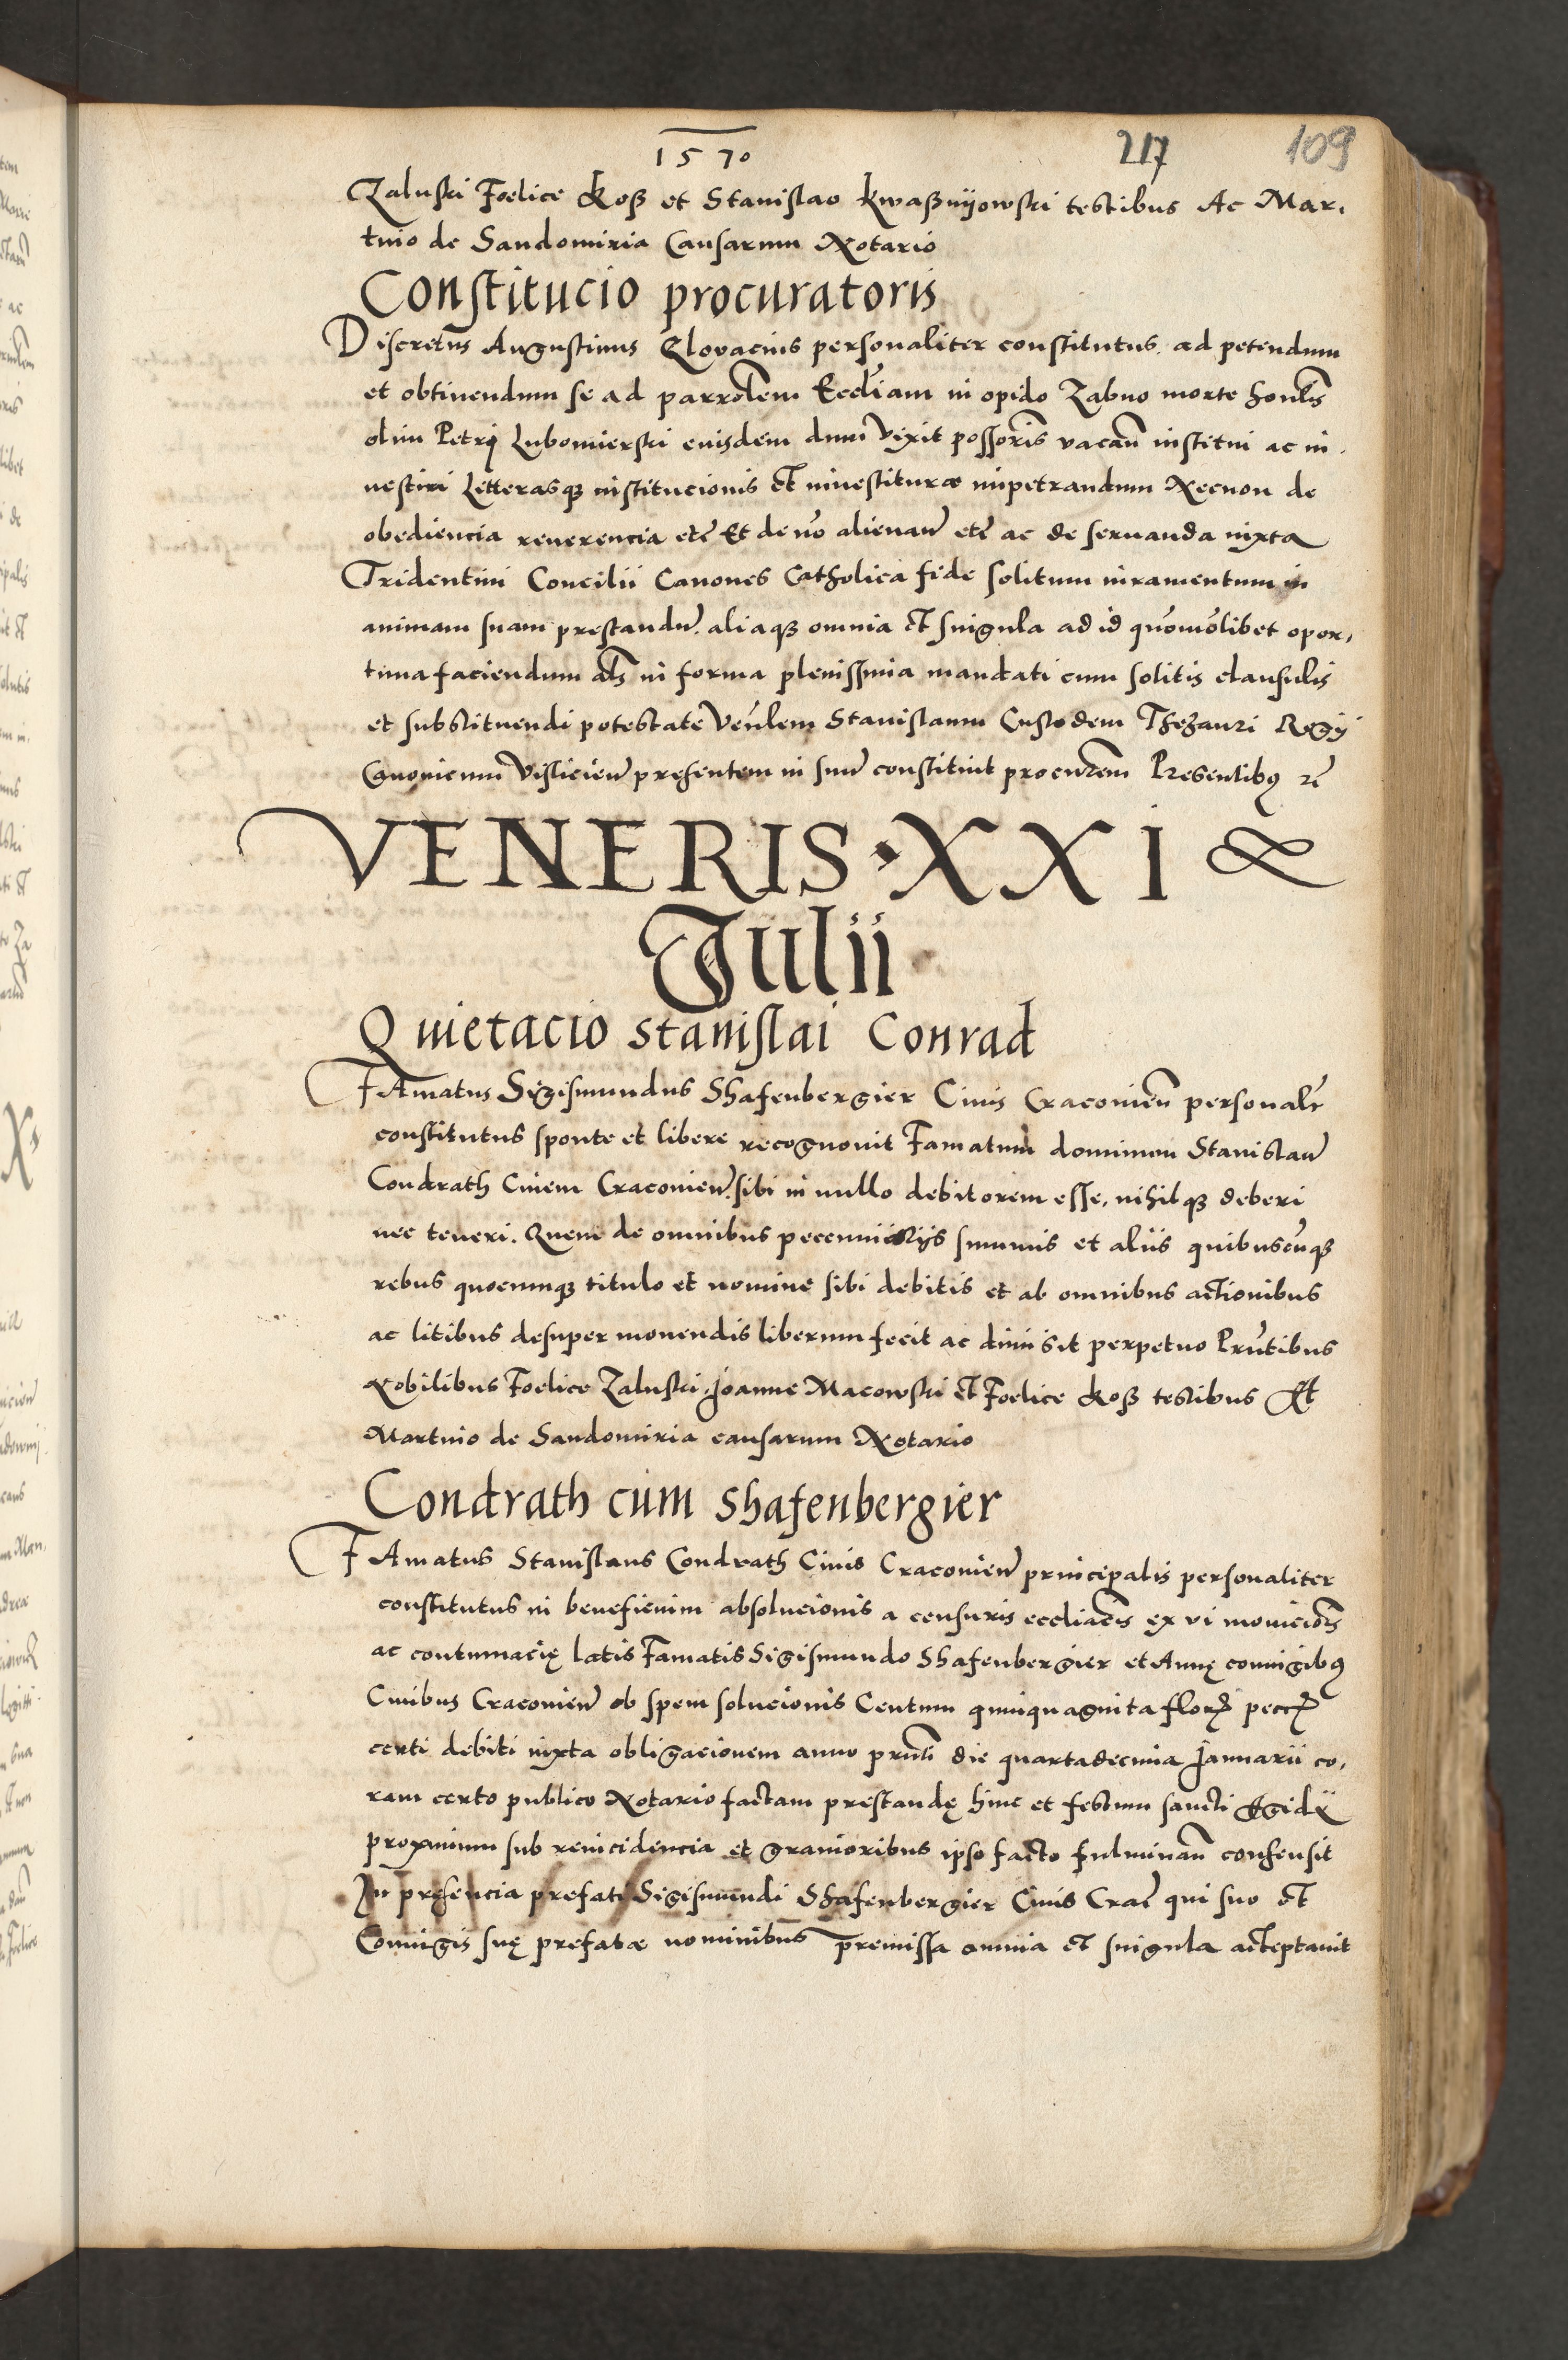 1570
217 109
Zaluski Foelice Koß et Stanislao Kwaßnÿowski testibus Ac Mar,
tino de Sandomiria Causarum Notario
Constitucio procuratoris
Discretus Augustinus personaliter constitutus, ad petendum
et obtinendum se ad parrolem Eccliam in opido Zabno morte honlis
olim Petrÿ Lubomierski eiusdem dum vixit possoris vacan institui ac in,
uestiri Litterasqz institucionis et inuestiturae impetrandum Necnon de
obediencia reuerencia etc Et de no alienan etc ac de seruanda iuxta
Tridentini Concilii Canones Catholica fide solitum iuramentum in
animam suam prestandu. aliaqz omnia et singula ad id quomolibet opor,
tuna faciendum als in forma plenissima mandati cum solitis clausulis
et substituendi potestate Venlem Stanislaum Custodem Thezauri Regÿ
Canonicum Vislicien presentem in suu constituit procurem Presentibus
VENERIS · XXI
Julii
Quietacio Stanislai Conrad
FAmatus Sigismundus Shafenbergier Ciuis Cracouien personalr
constitutus sponte et libere recognouit Famatum dominum Stanislau
Condrath Ciuem Cracouien. sibi in nullo debitorem esse, nihilqz deberi
nec teneri. Quem de omnibus pecuniarÿs summis et aliis quibuscuqz
rebus quocumqz titulo et nomine sibi debitis et ab omnibus actionibus
ac litibus desuper mouendis liberum fecit ac dimisit perpetuo Prntibus
Nobilibus Foelice Zaluski, Joanne Macowski et Foelice Koß testibus Et
Martino de Sandomiria causarum Notario
Condrath cum Shafenbergier
FAmatus Stanislaus Condrath Ciuis Cracouien principalis personaliter
constitutus in beneficium absolucionis a censuris eccliacis ex vi monicois
ac contumacię latis Famatis Sigismundo Shafenbergier et Annę coniugibus
Ciuibus Cracouien ob spem solucionis Centum quinquaginta flor pecc
certi debiti iuxta obligacionem anno prnti die quartadecima Januarii co,
ram certo publico Notario factam prestandę hinc et festum sancti Egidÿ
proximum sub reincidencia et grauioribus ipso facto fulminan consensit
In presencia prefati Sigismundi Shafenbergier Ciuis Crac qui suo et
Coniugis suę prefatae nominibus premissa omnia et singula acceptauit